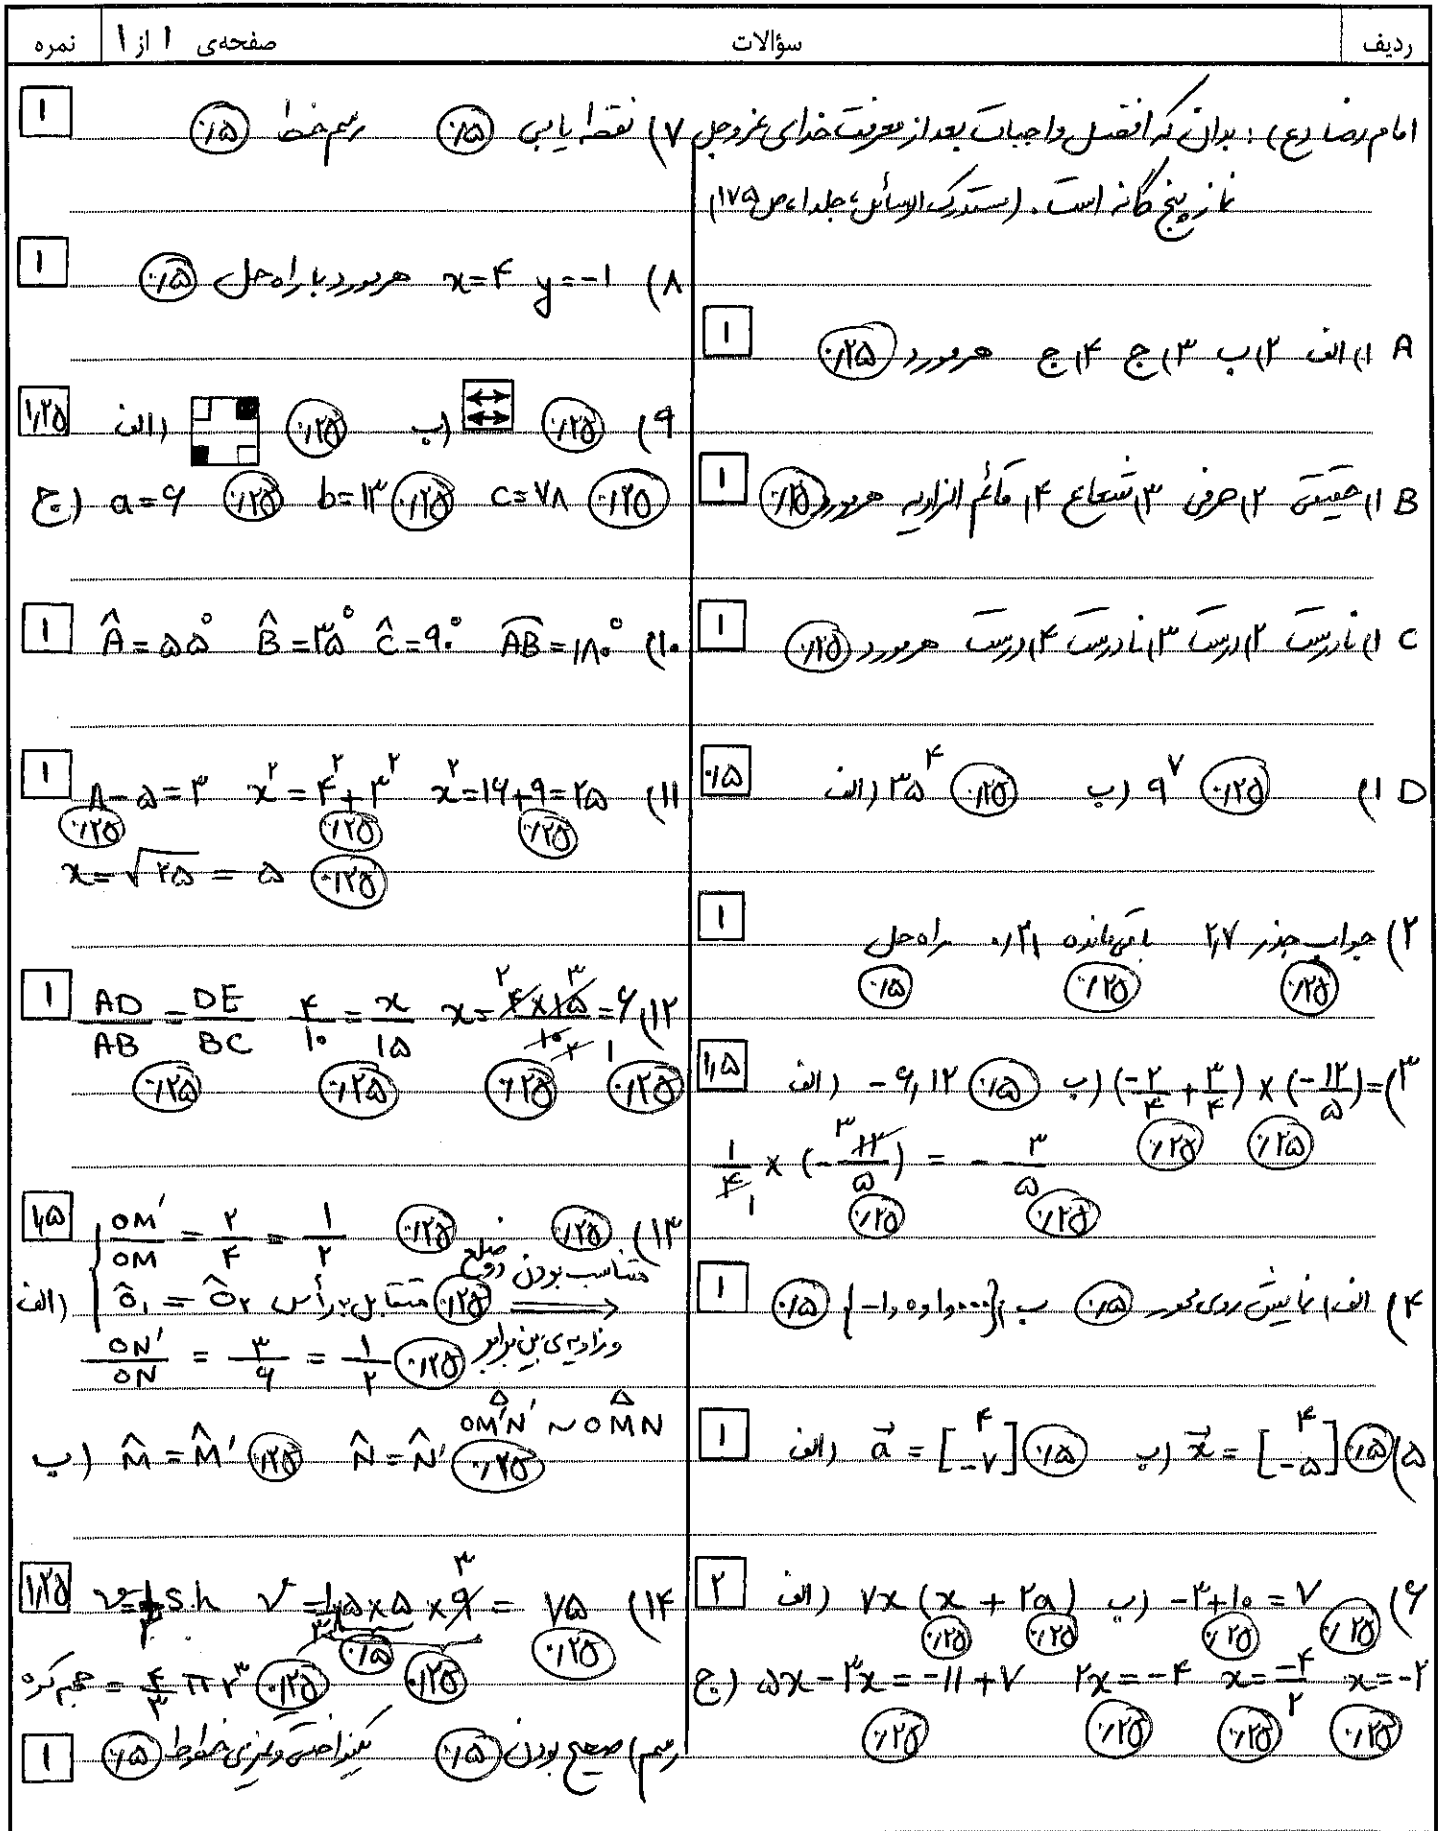 ردیف سؤالات صفحه‌ی ۱ از ۱ نمره
امام رضا (ع) : بدان که افضل واجبات بعد از معرفت خدای عزوجل
نماز پنج گانه است. (مستدرک الوسائل، جلد۱، ص ۱۷۵)
A ۱) الف ۲) ب ۳) ج ۴) ج هرمورد ۰/۲۵ ۱
B ۱) حقیقی ۲) صرفی ۳) شعاع ۴) قائم الزاویه هرمورد ۰/۲۵ ۱
C ۱) نادرست ۲) درست ۳) نادرست ۴) درست هرمورد ۰/۲۵ ۱
D ۱) الف) ۳۵^۴ ۰/۲۵ ب) ۹^۷ ۰/۲۵ ۰/۵
۲) جواب جذر ۲/۷ باقی‌مانده ۰/۲۱ راه حل ۱
۰/۲۵ ۰/۲۵ ۰/۵
۳) الف) -۶,۱۲ ۰/۵ ب) (-۲/۴ + ۳/۴) × (-۱۲/۵) = ۱/۵
۰/۲۵ ۰/۲۵
۱/۴ × (-۱۲/۵) = -۳/۵
۰/۲۵ ۰/۲۵
۴) الف) نمایش روی محور ۰/۵ ب) {-۱,۰,۱,...} ۰/۵ ۱
۵) الف) a⃗ = [۴ -۷] ۰/۵ ب) x⃗ = [۴ -۵] ۰/۵ ۱
۶) الف) ۷x (x + ۲a) ب) -۳+۱۰ = ۷ ۰/۲۵ ۲
۰/۲۵ ۰/۲۵ ۰/۲۵
ج) ۵x-۳x = -۱۱+۷ ۲x = -۴ x = -۴/۲ x = -۲
۰/۲۵ ۰/۲۵ ۰/۲۵ ۰/۲۵
۷) نقطه یابی ۰/۵ رسم خط ۰/۵ ۱
۸) x=۴ y=-۱ هرمورد با راه حل ۰/۵ ۱
۹) الف) ۰/۲۵ ب) ۰/۲۵ ۱/۲۵
ج) a=۶ ۰/۲۵ b=۱۳ ۰/۲۵ c=۷۸ ۰/۲۵
۱۰) Â=۵۵° B̂=۳۵° Ĉ=۹۰° AB=۱۸۰° ۱
۱۱) ۸-۵=۳ x²=۴²+۳² x²=۱۶+۹=۲۵ ۱
۰/۲۵ ۰/۲۵ ۰/۲۵
x=√۲۵ = ۵ ۰/۲۵
۱۲) AD/AB = DE/BC ۴/۱۰ = x/۱۵ x = ۴×۱۵/۱۰ = ۶ ۱
۰/۲۵ ۰/۲۵ ۰/۲۵ ۰/۲۵
۱۳) OM'/OM = ۲/۴ = ۱/۲ ۰/۲۵ ۰/۲۵ ۱/۵
الف) Ô₁ = Ô₂ متقابل برأس ۰/۲۵ متناسب بودن دو ضلع
ON'/ON = ۳/۶ = ۱/۲ ۰/۲۵ و زاویه‌ی بین برابر
OM'N' ~ OMN
ب) M̂ = M̂' ۰/۲۵ N̂ = N̂' ۰/۲۵
۱۴) v=۱/۳ s.h v=۱/۳ ۵×۵×۹ = ۷۵ ۱/۲۵
۰/۵ ۰/۲۵ ۰/۲۵
حجم کره = ۴/۳ πr³ ۰/۲۵
رسم) صحیح بودن ۰/۵ خطوط ۰/۵ ۱